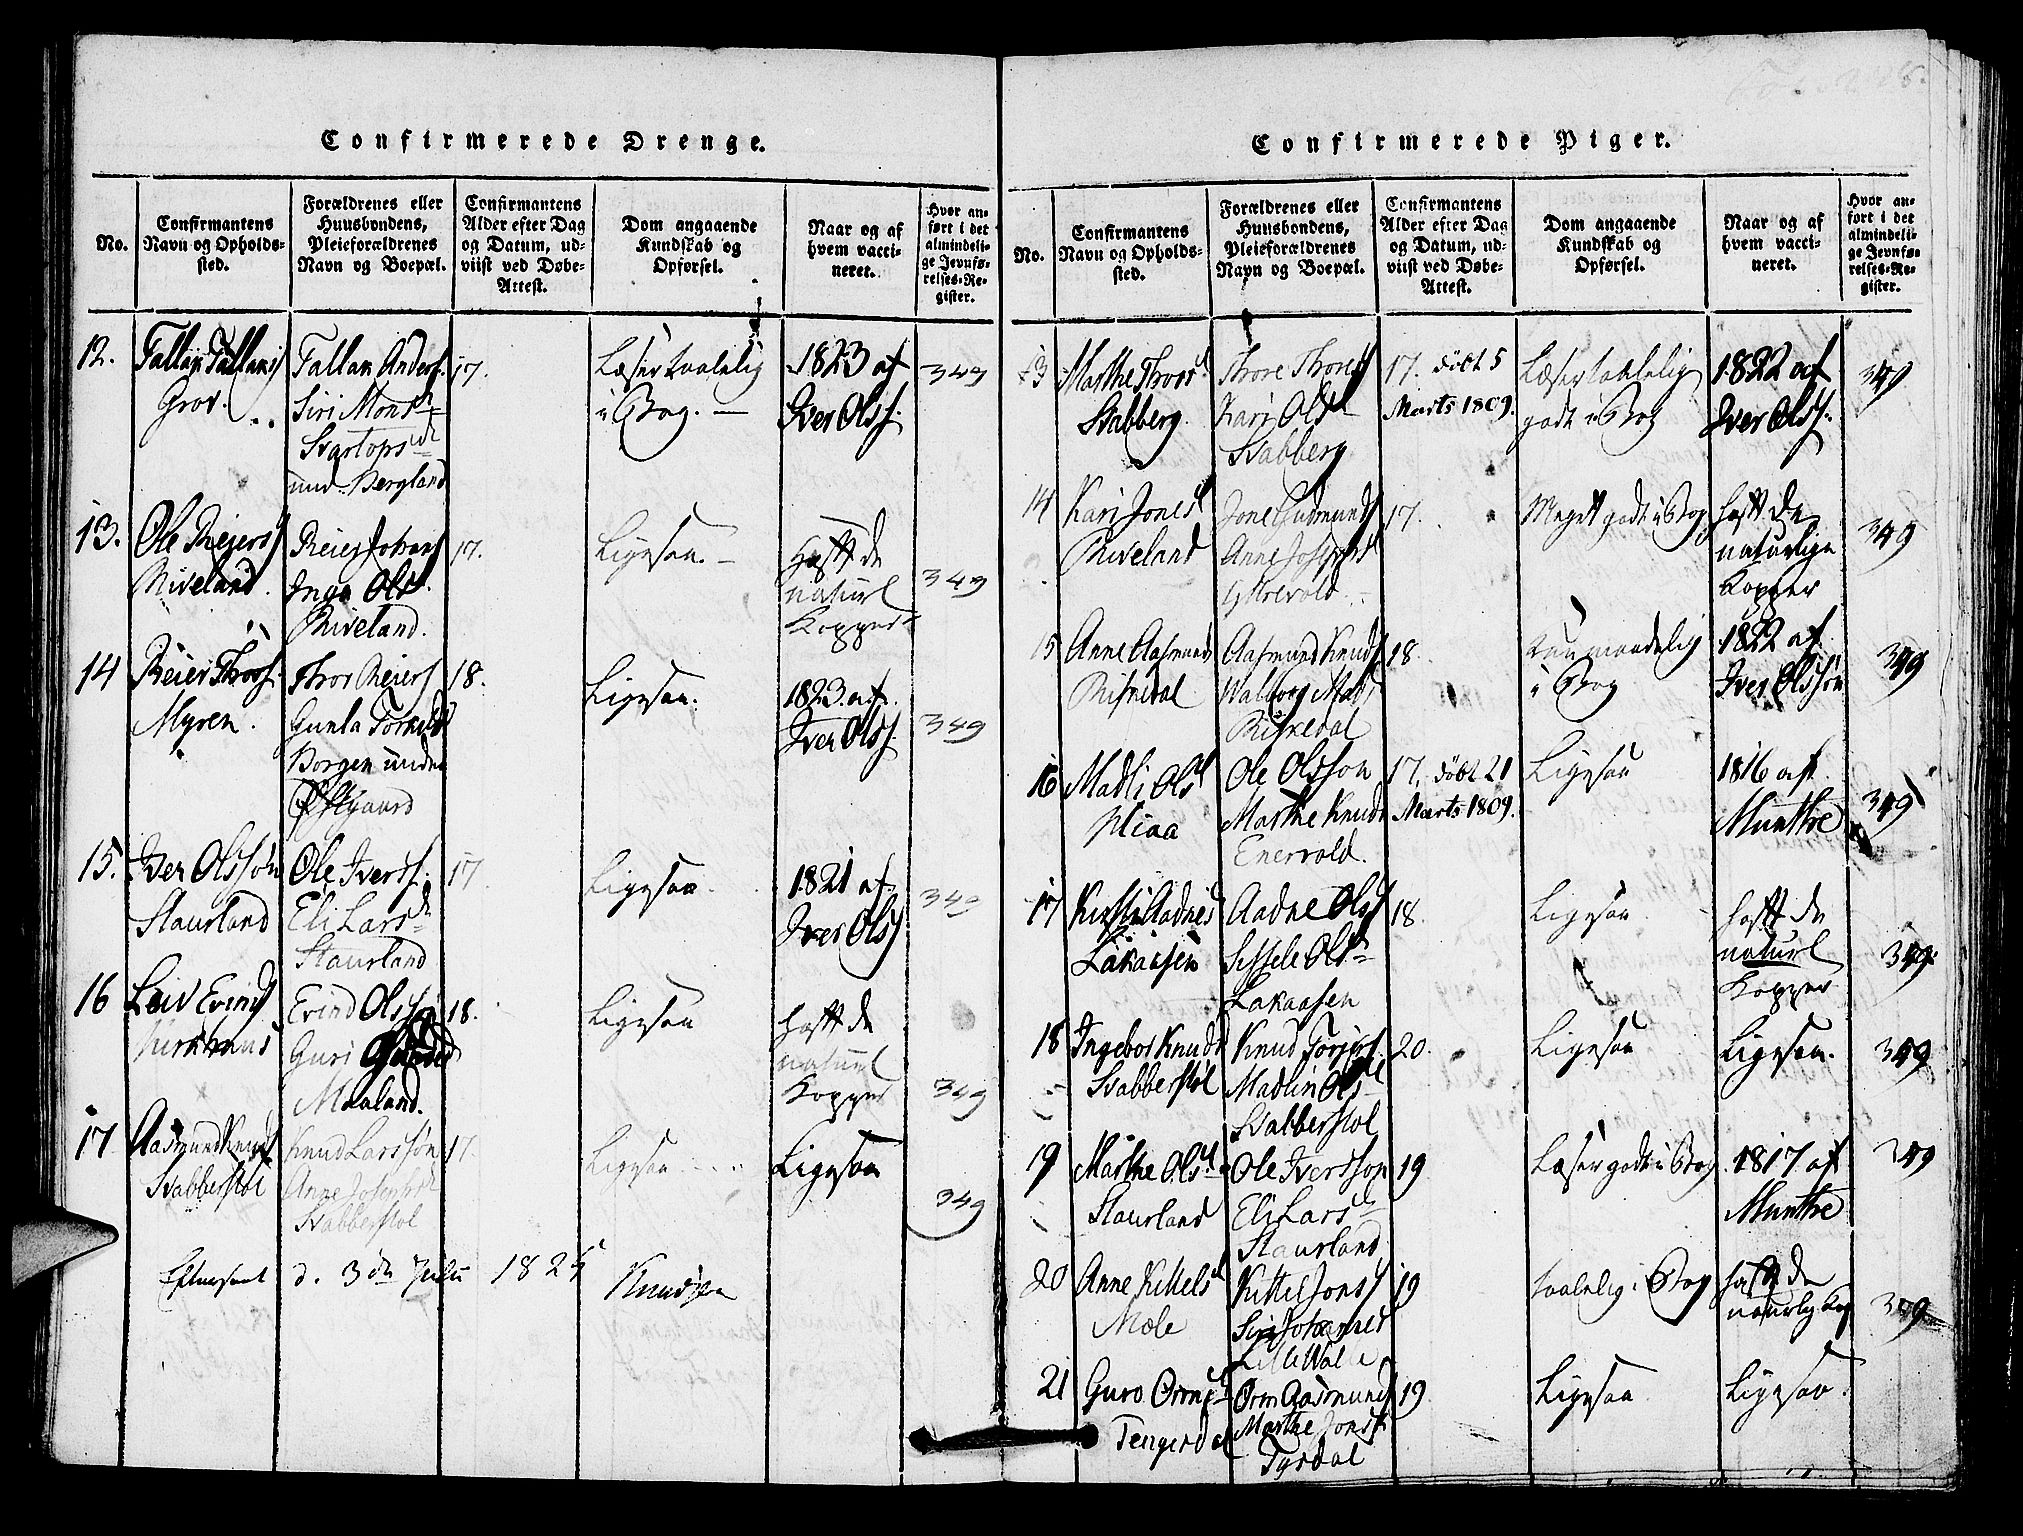 Confirmerede Drenge.
No.
Confirmantens
Navn og Opholds-
sted.
Forældrenes eller
Huusbondens,
Pleieforældrenes
Navn og Boepæl.
Confirmantens
Alder efter Dag
og Datum, ud-
viist ved Døbe-
Attest.
Dom angaaende
Kundskab og
Opførsel.
Naar og af
hvem vacci-
neret.
Hvor an-
ført i det
almindeli-
ge Jevnfø-
relses-Re-
gister.
12.
Tallan Tallans
Grov.
Tallan Anders.
Siri Mons
Svartops
und. Bergland
17.
Læser taalelig
i Bog.
1823 af
Iver Olss.
349
13.
Ole Reiers
Riveland.
Reier Johans
Inga Ols
Riveland.
17.
Ligesaa.
Hafft de
naturl
Kopper
349
14
Reier Thors.
Myren.
Thor Reiers
Gunla Torkilds
Borgen under
Østgaard
18.
Ligesaa.
1823 af.
Iver Olss.
349
15.
Iver Olsson
Staurland
Ole Iverss.
Eli Lars
Staurland
17
Ligesaa.
1821 af.
Iver Olss
349
16
Leiv Evinds
Kirkhuus
Evind Olss
Guri
Maaland.
18.
Ligesaa
hafft de
naturl
Kopper
349
17
Aasmund Knuds
Svabberstøl
Knud Larsson
Anne Josephs
Svabberstol
17.
Ligesaa
Ligesaa
349
Efterseet d. 3die Julii 1825
Knudsen
Confirmerede Piger.
No.
Confirmantens
Navn og Opholds-
sted.
Forældrenes eller
Huusbondens,
Pleieforældrenes
Navn og Boepæl.
Confirmantens
Alder efter Dag
og Datum, ud-
viist ved Døbe-
Attest.
Dom angaaende
Kundskab og
Opførsel.
Naar og af
hvem vacci-
neret.
Hvor an-
ført i det
almindeli-
ge Jevnfø-
relses-Re-
gister.
13
Marthe Thors
Svabberg.
Thore Thores
Kari Ols
Svabberg
17. Födt 5
Marts 1809.
Læser taalelig
godt i Bog
1822 af
Iver Olss.
349
14
Kari Jones
Riveland
Jone Gudmunds
Anne Josephs
Ytrevold.
17.
Meget godt i Bog
hafft de
naturlige
Kopper
349
15
Anne Aasmunds
Risnedal
Aasmund Knuds
Walborg Mads
Risnedal
18.
maadelig
i Bog
1822 af
Iver Olsson
349
16
Madli Ols
Miaa
Ole Olsson
Marthe Knuds
Enervold.
17. födt 21
Marts 1809.
Ligesaa
1816 af
Munthe
349
17
Kirstin Aadnes
Lakaasen
Aadne Olss
Sissele Ols
Lakaasen
18.
Ligesaa
hafft de
naturl
Kopper
349.
18
Ingebor Knuds
Svabberstøl
Knud Torjers.
Madlin Ols
Svabberstol
20.
Ligesaa
Ligesaa.
349
19
Marthe Ols
Staurland
Ole Iversson
Eli Lars
Staurland
19
Læser godt i Bog
1817 af
Munthe
349
20
Anne Kittels
Mæle
Kittel Jonss
Siri Johannes
19
taalelig i Bog
hafft de
naturlig Kop
349
21
Guro Orms
Tengesdal
Orm Aasmunds
Marthe Jons
Tysdal
19
Ligesaa
Ligesaa.